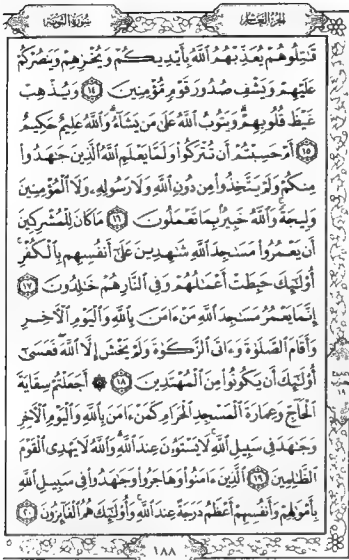 الجزء العاشر
سورة التوبة
قَٰتِلُوهُمْ يُعَذِّبْهُمُ ٱللَّهُ بِأَيْدِيكُمْ وَيُخْزِهِمْ وَيَنصُرْكُمْ
عَلَيْهِمْ وَيَشْفِ صُدُورَ قَوْمٍ مُّؤْمِنِينَ ١٤ وَيُذْهِبْ
غَيْظَ قُلُوبِهِمْ وَيَتُوبُ ٱللَّهُ عَلَىٰ مَن يَشَآءُ وَٱللَّهُ عَلِيمٌ حَكِيمٌ
١٥ أَمْ حَسِبْتُمْ أَن تُتْرَكُوا۟ وَلَمَّا يَعْلَمِ ٱللَّهُ ٱلَّذِينَ جَٰهَدُوا۟
مِنكُمْ وَلَمْ يَتَّخِذُوا۟ مِن دُونِ ٱللَّهِ وَلَا رَسُولِهِۦ وَلَا ٱلْمُؤْمِنِينَ
وَلِيجَةً وَٱللَّهُ خَبِيرٌۢ بِمَا تَعْمَلُونَ ١٦ مَا كَانَ لِلْمُشْرِكِينَ
أَن يَعْمُرُوا۟ مَسَٰجِدَ ٱللَّهِ شَٰهِدِينَ عَلَىٰٓ أَنفُسِهِم بِٱلْكُفْرِ
أُو۟لَٰٓئِكَ حَبِطَتْ أَعْمَٰلُهُمْ وَفِى ٱلنَّارِ هُمْ خَٰلِدُونَ ١٧
إِنَّمَا يَعْمُرُ مَسَٰجِدَ ٱللَّهِ مَنْ ءَامَنَ بِٱللَّهِ وَٱلْيَوْمِ ٱلْءَاخِرِ
وَأَقَامَ ٱلصَّلَوٰةَ وَءَاتَى ٱلزَّكَوٰةَ وَلَمْ يَخْشَ إِلَّا ٱللَّهَ فَعَسَىٰٓ
أُو۟لَٰٓئِكَ أَن يَكُونُوا۟ مِنَ ٱلْمُهْتَدِينَ ١٨ ۞ أَجَعَلْتُمْ سِقَايَةَ
ٱلْحَآجِّ وَعِمَارَةَ ٱلْمَسْجِدِ ٱلْحَرَامِ كَمَنْ ءَامَنَ بِٱللَّهِ وَٱلْيَوْمِ ٱلْءَاخِرِ
وَجَٰهَدَ فِى سَبِيلِ ٱللَّهِ لَا يَسْتَوُۥنَ عِندَ ٱللَّهِ وَٱللَّهُ لَا يَهْدِى ٱلْقَوْمَ
ٱلظَّٰلِمِينَ ١٩ ٱلَّذِينَ ءَامَنُوا۟ وَهَاجَرُوا۟ وَجَٰهَدُوا۟ فِى سَبِيلِ ٱللَّهِ
بِأَمْوَٰلِهِمْ وَأَنفُسِهِمْ أَعْظَمُ دَرَجَةً عِندَ ٱللَّهِ وَأُو۟لَٰٓئِكَ هُمُ ٱلْفَآئِزُونَ ٢٠
١٨٨